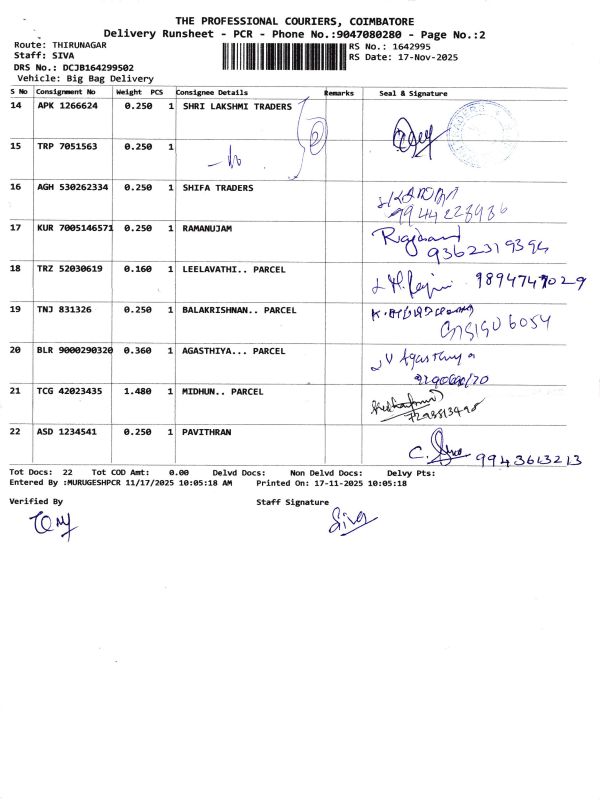 THE PROFESSIONAL COURIERS, COIMBATORE
Delivery Runsheet - PCR - Phone No.:9047080280 - Page No.:2
Route: THIRUNAGAR
RS No.: 1642995
Staff: SIVA
RS Date: 17-Nov-2025
DRS No.: DCJB164299502
Vehicle: Big Bag Delivery
S No Consignment No Weight PCS Consignee Details Remarks Seal & Signature
14 APK 1266624 0.250 1 SHRI LAKSHMI TRADERS
15 TRP 7051563 0.250 1
16 AGH 530262334 0.250 1 SHIFA TRADERS
9944228986
17 KUR 7005146571 0.250 1 RAMANUJAM
9362319394
18 TRZ 52030619 0.160 1 LEELAVATHI.. PARCEL
9894747029
19 TNJ 831326 0.250 1 BALAKRISHNAN.. PARCEL
20 BLR 9000290320 0.360 1 AGASTHIYA... PARCEL
21 TCG 42023435 1.480 1 MIDHUN.. PARCEL
22 ASD 1234541 0.250 1 PAVITHRAN
9943613213
Tot Docs: 22 Tot COD Amt: 0.00 Delvd Docs: Non Delvd Docs: Delvy Pts:
Entered By :MURUGESHPCR 11/17/2025 10:05:18 AM Printed On: 17-11-2025 10:05:18
Verified By Staff Signature
Siva